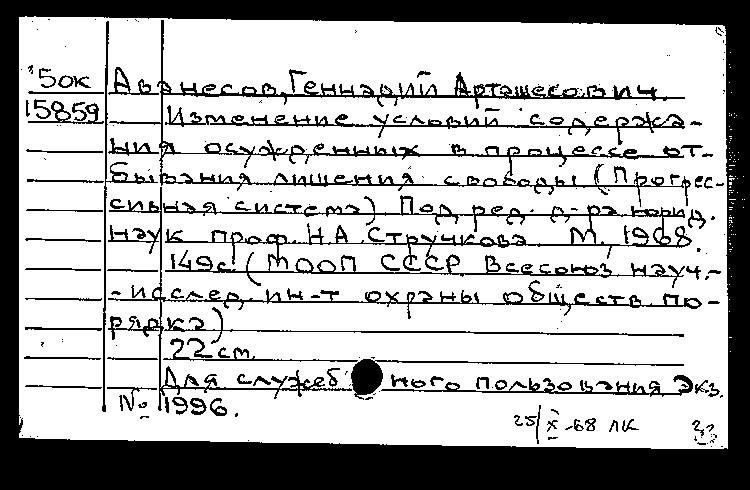 50к Аванесов, Геннадий Арташесович.
15859 Изменение условий содержа-
ния осужденных в процессе от-
бывания лишения свободы (Прогрес-
сивная система) Под ред. д-ра юрид.
наук проф. Н.А. Стручкова. М., 1968.
149с. (МООП СССР. Всесоюз. науч.-
-исслед. ин-т охраны обществ. по-
рядка).
22 см.
Для служебного пользования Экз.
№ 1996.
25/X-68 ЛК